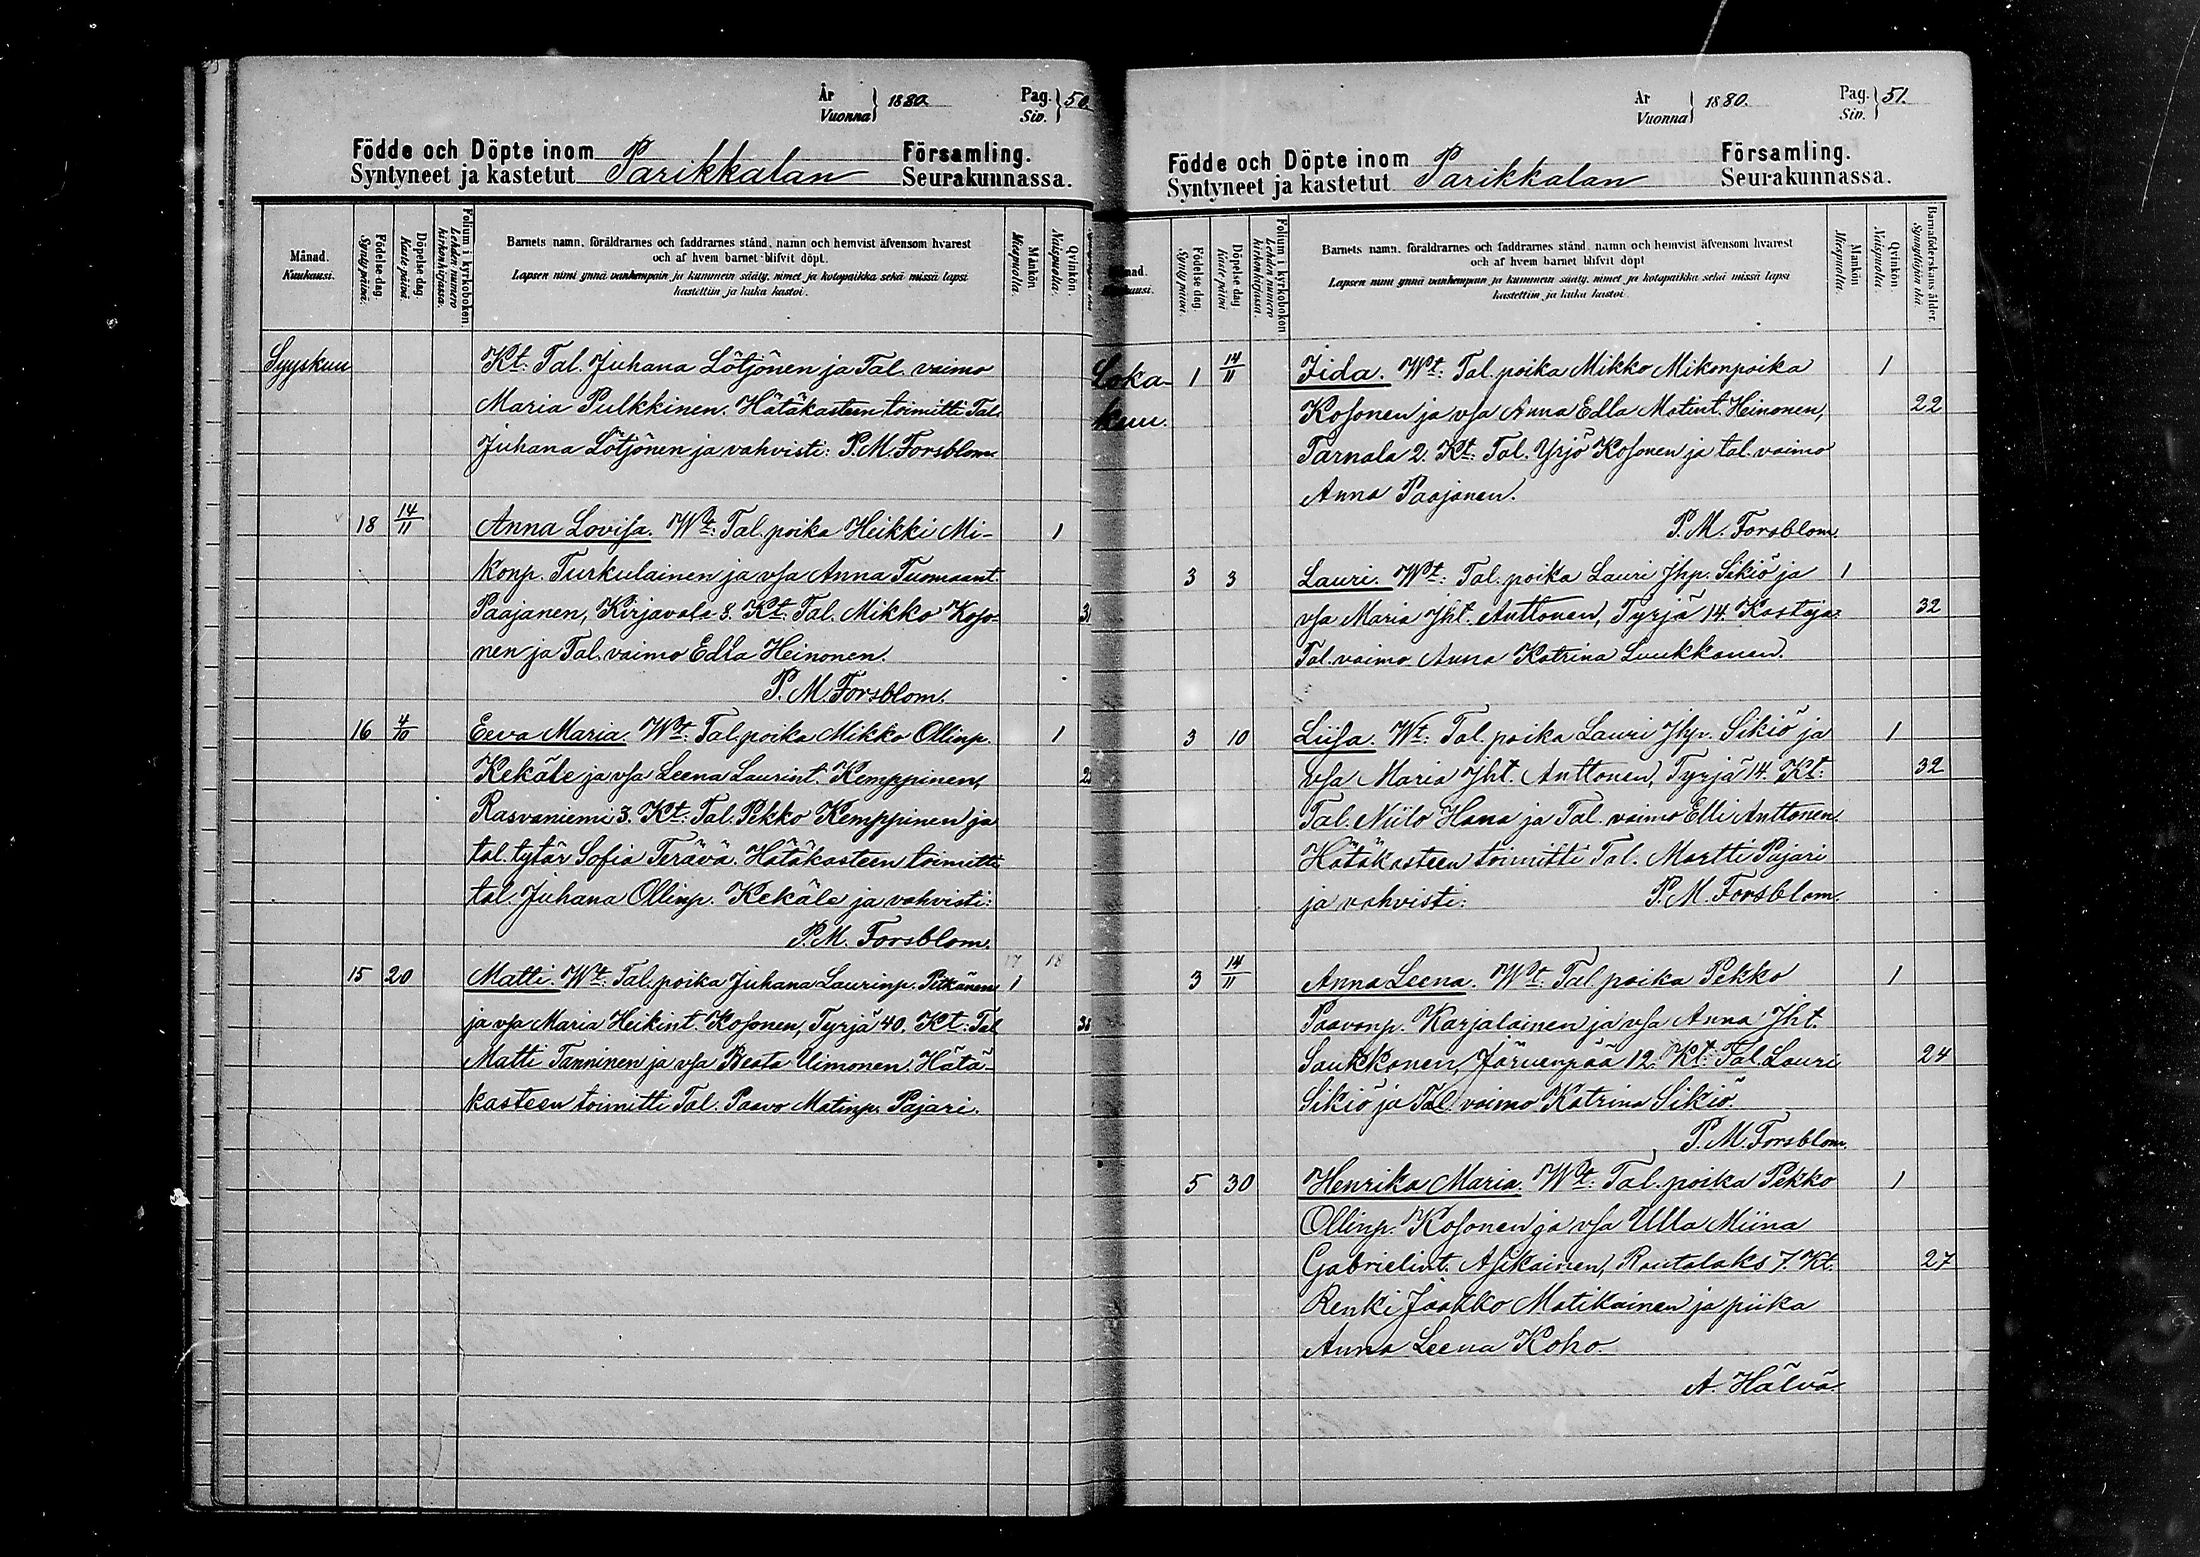 År
Vuonna } 1880.
Pag.
Siv. } 50.
Födde och Döpte inom Parikkalan Församling.
Syntyneet ja kastetut Seurakunnassa.
Månad.
Kuukausi.
Födelse dag.
Syntypäivä.
Döpelse dag.
Kaste päivä
Folium i kyrkoboken
Lehden numero kirkonkirjassa.
Barnets namn, föräldrarnes och faddrarnes stånd, namn och hemvist äfvensom hvarest
och af hvem barnet blifvit döpt.
Lapsen nimi ynnä vanhempain ja kummein sääty, nimet ja kotopaikka sekä missä lapsi
kastettiin ja kuka kastoi.
Mankön
Miespuolia.
Qvinkön.
Naispuolia.
Syyskuu Kt: Tal. Juhana Lötjönen ja Tal. vaimo
Maria Pulkkinen. Hätäkasteen toimitti Tal.
Juhana Lötjönen ja vahvisti: P.M. Forsblom
18 14/11 Anna Lovisa. Wt: Tal. poika Heikki Mi- 1
konp. Turkulainen ja vsa Anna Tuomaant.
Paajanen, Kirjavala 8. Kt: Tal. Mikko Koso-
nen ja Tal. vaimo Edla Heinonen.
P. M. Forsblom.
16 4/10 Eeva Maria. Wt: Tal. poika Mikko Ollinp. 1
Kekäle ja vsa Leena Laurint. Kemppinen,
Rasvaniemi 3. Kt: Tal. Pekko Kemppinen ja
tal. tytär Sofia Terävä. Hätäkasteen toimitti
tal. Juhana Ollinp. Kekäle ja vahvisti:
P.M. Forsblom.
17 18
15 20 Matti. Wt: Tal. poika Juhana Laurinp. Pitkänen 1
ja vsa Maria Heikint. Kosonen, Tyrjä 40. Kt: Tal
Matti Tanninen ja vsa Beata Uimonen. Hätä-
kasteen toimitti Tal. Paavo Matinp. Pajari.
År
Vuonna } 1880.
Pag.
Siv. } 51.
Födde och Döpte inom Parikkalan Församling.
Syntyneet ja kastetut Seurakunnassa.
Födelse dag.
Synty päivä.
Döpelse dag.
Kaste päivä
Folium i kyrkoboken
Lehden numero kirkonkirjassa.
Barnets namn, föräldrarnes och faddrarnes stånd, namn och hemvist äfvensom hvarest
och af hvem barnet blifvit döpt
Lapsen nimi ynnä vanhempain ja kummein sääty, nimet ja kotopaikka sekä missä lapsi
kastettiin ja kuka kastoi.
Mankön
Miespuolia.
Qvinkön.
Naispuolia
Barnaföderskans ålder.
Synnyttäjän ikä.
Loka- 1 14/11 Iida. Wt: Tal. poika Mikko Mikonpoika 1
kuu. Kosonen ja vsa Anna Edla Matint. Heinonen, 22
Tarnala 2. Kt: Tal. Yrjö Kosonen ja tal. vaimo
Anna Paajanen.
P. M. Forsblom.
3 3 Lauri. Wt: Tal. poika Lauri Jhp. Sikiö ja 1
vsa Maria Jht. Anttonen, Tyrjä 14. Kastaja: 32
Tal. vaimo Anna Katrina Luukkanen.
3 10 Liisa. Wt: Tal. poika Lauri Jhp. Sikiö ja 1
vsa Maria Jht. Anttonen, Tyrjä 14. Kt: 32
Tal. Niilo Hana ja Tal. vaimo Elli Anttonen.
Hätäkasteen toimitti Tal. Martti Pajari
ja vahvisti: P.M. Forsblom.
3 14/11 Anna Leena. Wt: Tal poika Pekko 1
Paavonp. Karjalainen ja vsa Anna Jht.
Saukkonen, Järvenpää 12. Kt: Tal. Lauri 24
Sikiö ja Tal. vaimo Katrina Sikiö.
P. M. Forsblom.
5 30 Henrika Maria. Wt: Tal. poika Pekko 1
Ollinp. Kosonen ja vsa Ulla Miina
Gabrielint. Asikainen, Rautalaks 7. Kt. 27
Renki Jaakko Matikainen ja piika
Anna Leena Koho.
A. Hälvä.